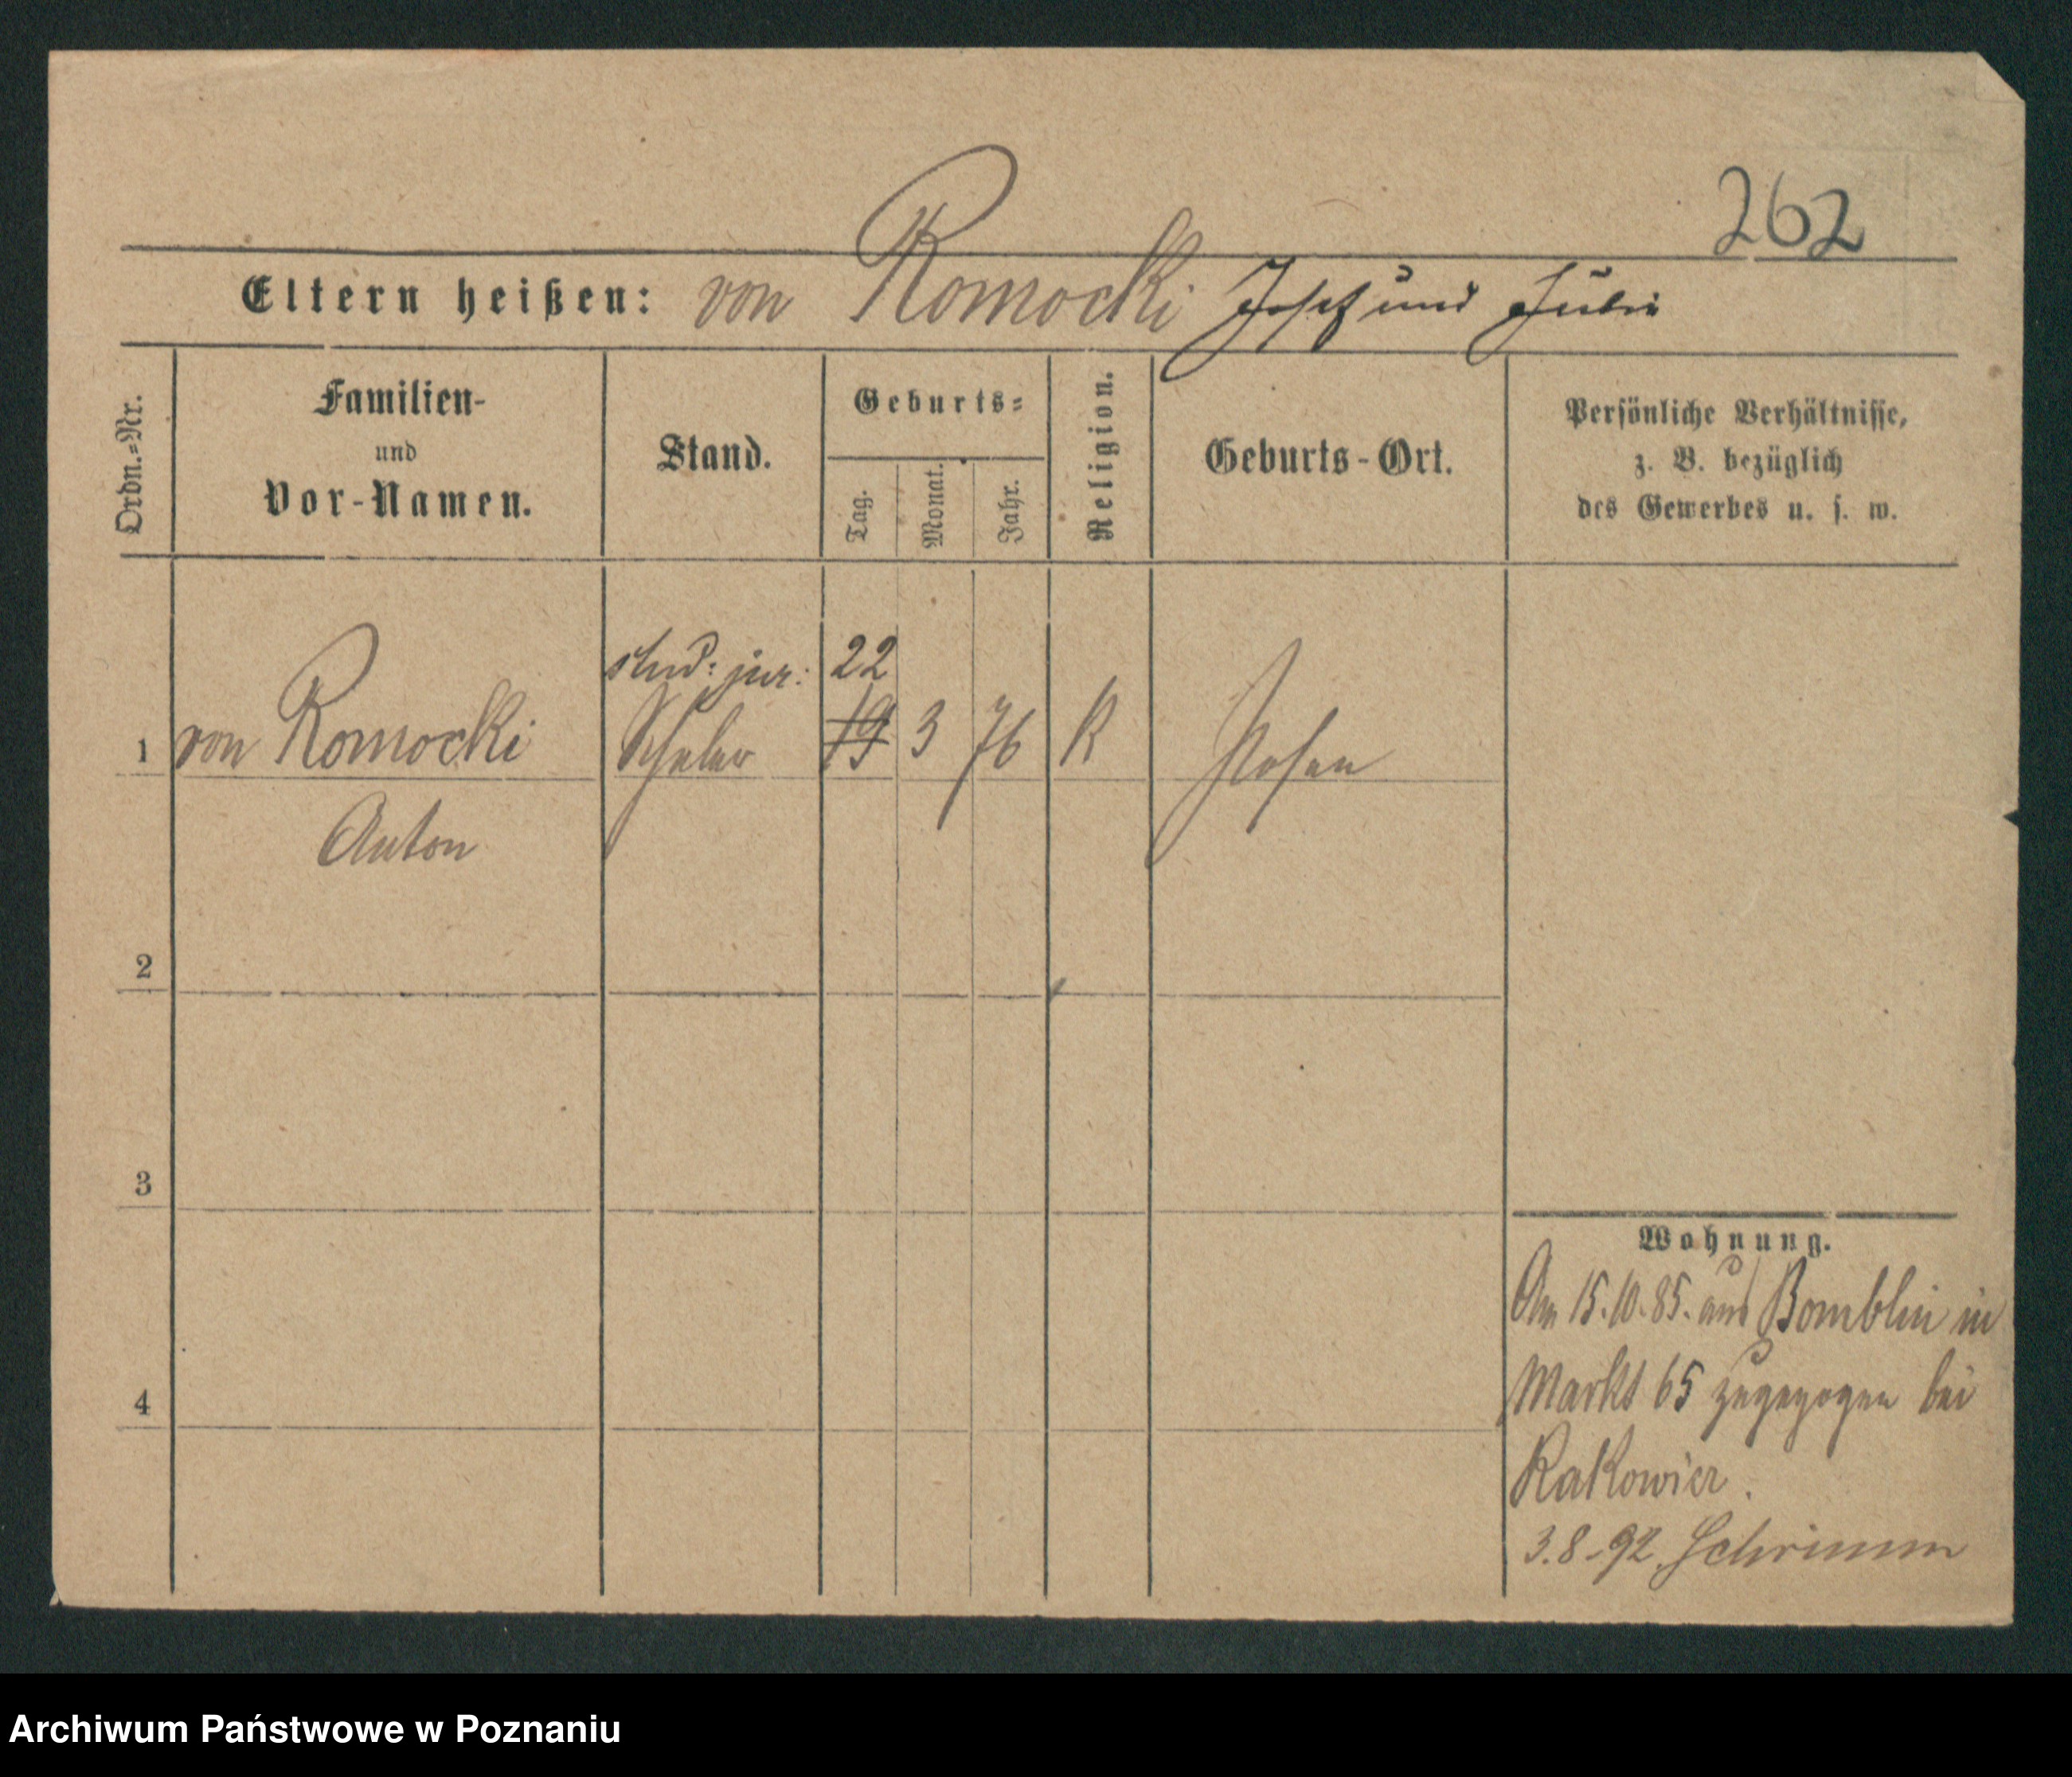 262
Eltern heißen: von Romocki Josef und Julie
Ordn.=Nr.
Familien-
und
Vor-Namen.
Stand.
Geburts=
Tag.
Monat.
Jahr.
Religion.
Geburts-Ort.
Persönliche Verhältnisse,
z. B. bezüglich
des Gewerbes u. s. w.
stud: jur: 22
1 von Romocki Schüler 19 3 76 K Posen
Anton
2
3
4
Wohnung.
Am 15.10.85. aus Bomblin in
Markt 65 zugezogen bei
Rakowicz.
3.8-92. Schrimm
Archiwum Państwowe w Poznaniu